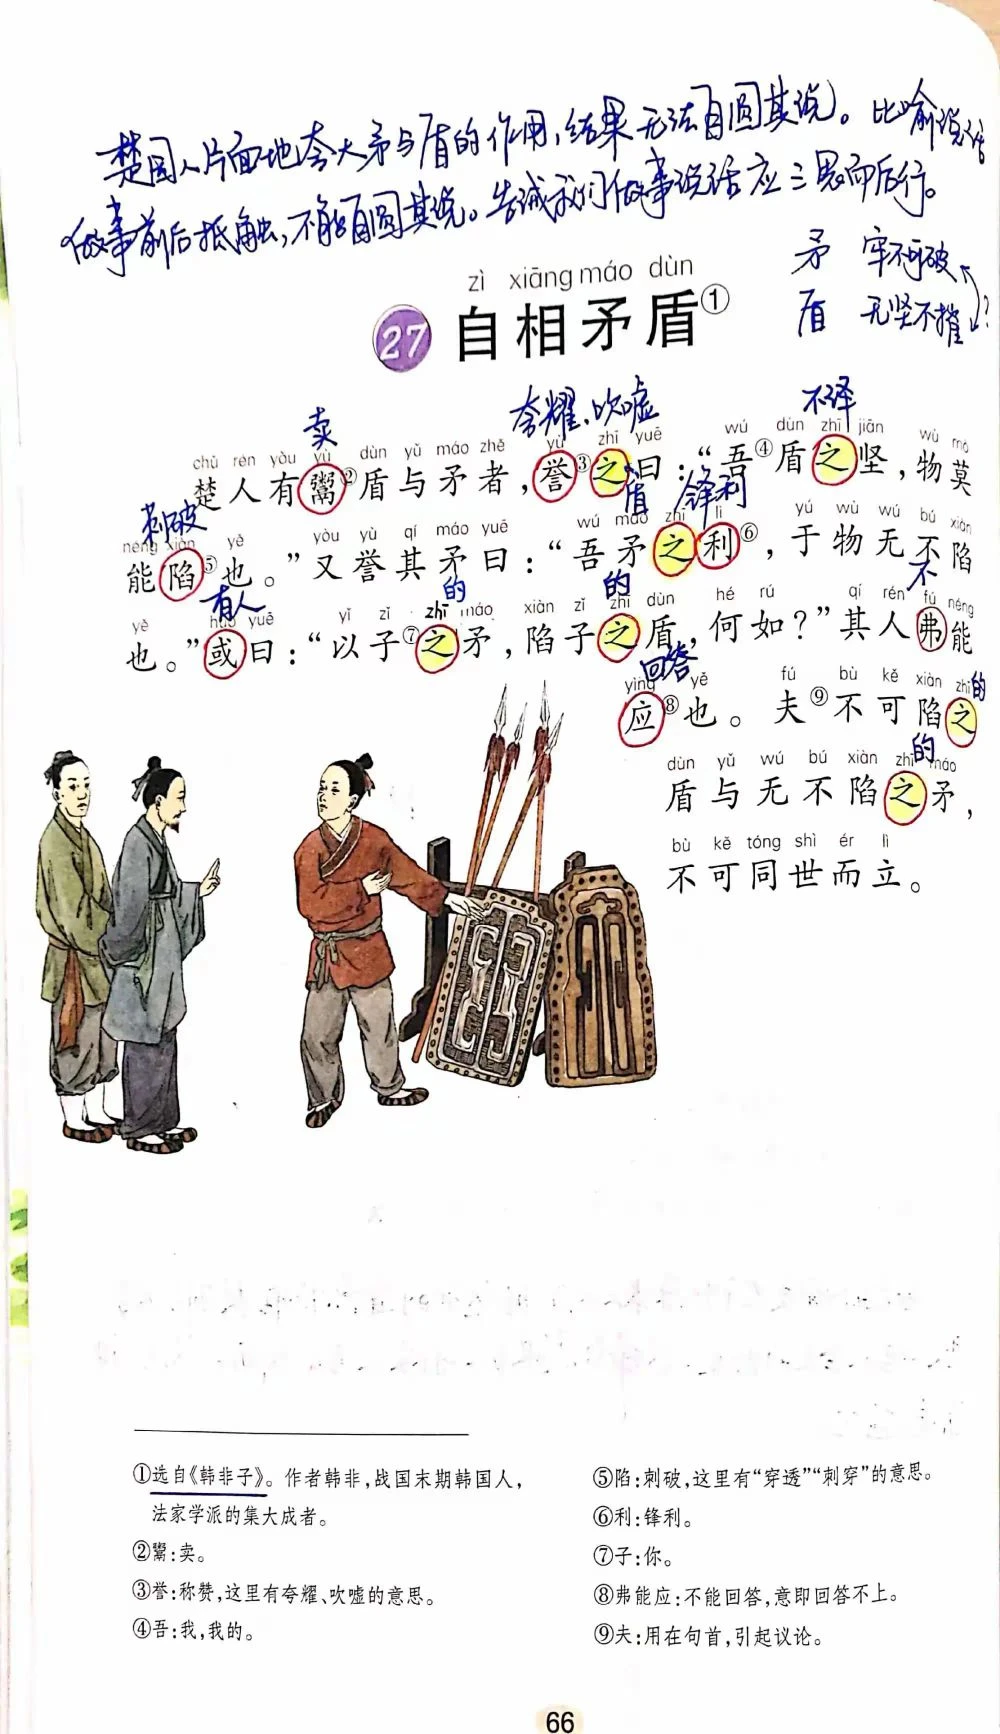 楚国人片面地夸大矛与盾的作用,结果无法自圆其说。比喻说话
做事前后抵触,不能自圆其说。告诫我们做事说话应三思而后行。
矛 牢不可破
盾 无坚不摧 ?
zì xiāng máo dùn
27 自相矛盾①
卖 夸耀、吹嘘 不译
chǔ rén yǒu yù dùn yǔ máo zhě yù zhī yuē wú dùn zhī jiān wù mò
楚人有鬻②盾与矛者,誉③之曰:“吾④盾之坚,物莫
刺破 盾 锋利
néng xiàn yě yòu yù qí máo yuē wú máo zhī lì yú wù wú bú xiàn
能陷⑤也。”又誉其矛曰:“吾矛之利⑥,于物无不陷
有人 的 的 不
yě huò yuē yǐ zǐ zhī máo xiàn zǐ zhī dùn hé rú qí rén fú néng
也。”或曰:“以子⑦之矛,陷子之盾,何如?”其人弗能
回答 的
yìng yě fú bù kě xiàn zhī
应⑧也。夫⑨不可陷之
的
dùn yǔ wú bú xiàn zhī máo
盾与无不陷之矛,
bù kě tóng shì ér lì
不可同世而立。
①选自《韩非子》。作者韩非,战国末期韩国人,
法家学派的集大成者。
②鬻:卖。
③誉:称赞,这里有夸耀、吹嘘的意思。
④吾:我,我的。
⑤陷:刺破,这里有“穿透”“刺穿”的意思。
⑥利:锋利。
⑦子:你。
⑧弗能应:不能回答,意即回答不上。
⑨夫:用在句首,引起议论。
66